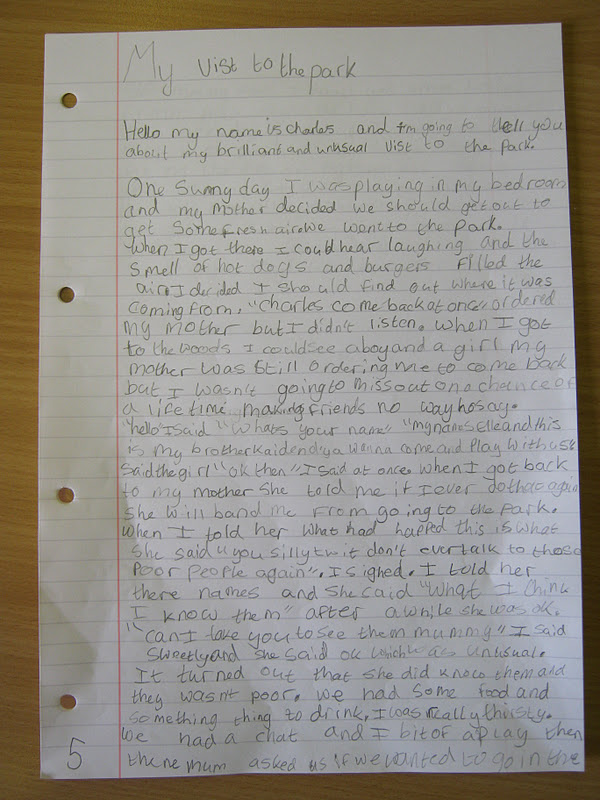 My Vist to the park
Hello my name is charles and I'm going to tell you
about my brilliant and unusual vist to the park.
One Sunny day I was playing in my bedroom
and my mother decided we should get out to
get some fresh air. We went to the park.
When I got there I could hear laughing and the
smell of hot dogs and burgers filled the
air. I decided I should find out where it was
coming from. "Charles come back at once" ordered
my mother but I didn't listen. When I got
to the woods I could see a boy and a girl my
mother was still ordering me to come back
but I wasn't going to miss out on a chance of
a life time making friends no way hosay.
"hello" I said "Whats your name" "my names Ellie and this
is my brother kaiden d'ya wanna come and play with us"
said the girl "ok then" I sad at once. When I got back
to my mother she told me if I ever do that again
she will band me from going to the park.
When I told her what had happed this is what
she said "you silly twit don't ever talk to those
poor people again". I sighed. I told her
there names and she said "What I think
I know them" after a while she was ok.
"can I take you to see them mummy" I said
sweetly and she said ok which was unusual.
It turned out that she did know them and
they wasnt poor. We had some food and
something thing to drink, I was really thirsty.
We had a chat and I bit of a play then
there mum asked us if we wanted to go in the
5